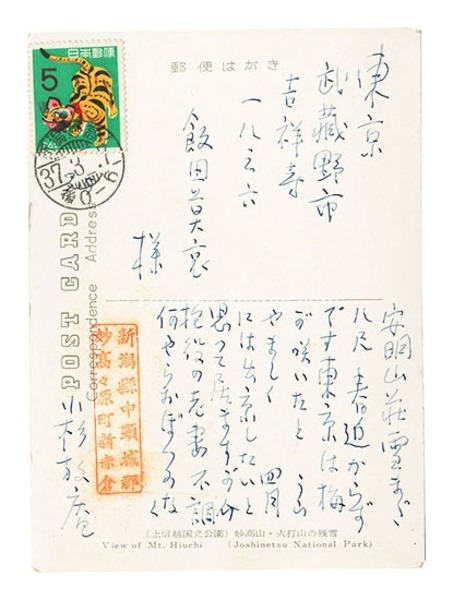 日本郵便
5
郵便はがき
東京
武蔵野市
吉祥寺
一八三六
飯田
様
37.3.7
POST CARD
Correspondence Address
安明山荘雪まだ
八尺 春迫からず
です東京は梅
が咲いたと うら
やましく 四月
には出京したいと
思って居ますが
老妻不調
何やらおぼつかなく
小杉放庵
新潟縣中頸城郡
妙高々原町新赤倉
(上信越国立公園) 妙高山・火打山の残雪
View of Mt. Hiuchi (Joshinetsu National Park)